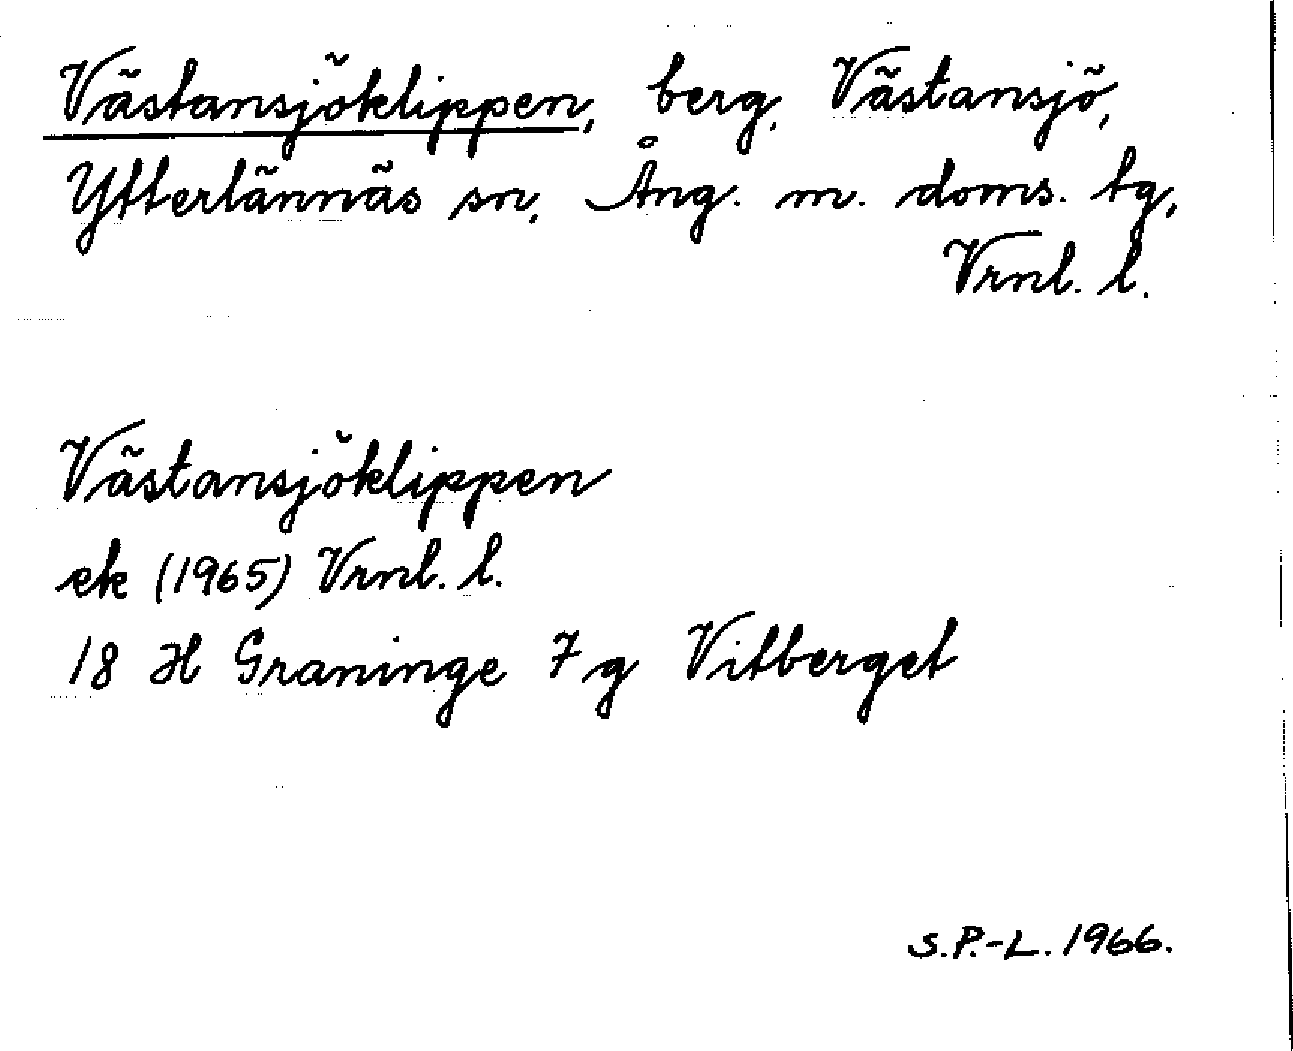 Västansjöklippen, berg, Västansjö,
Ytterlännäs sn, Ång. m. doms. tg,
Vrnl. l.
Västansjöklippen
ek (1965) Vrnl. l.
18 H Graninge 7 g Vitberget
S.P.-L. 1966.